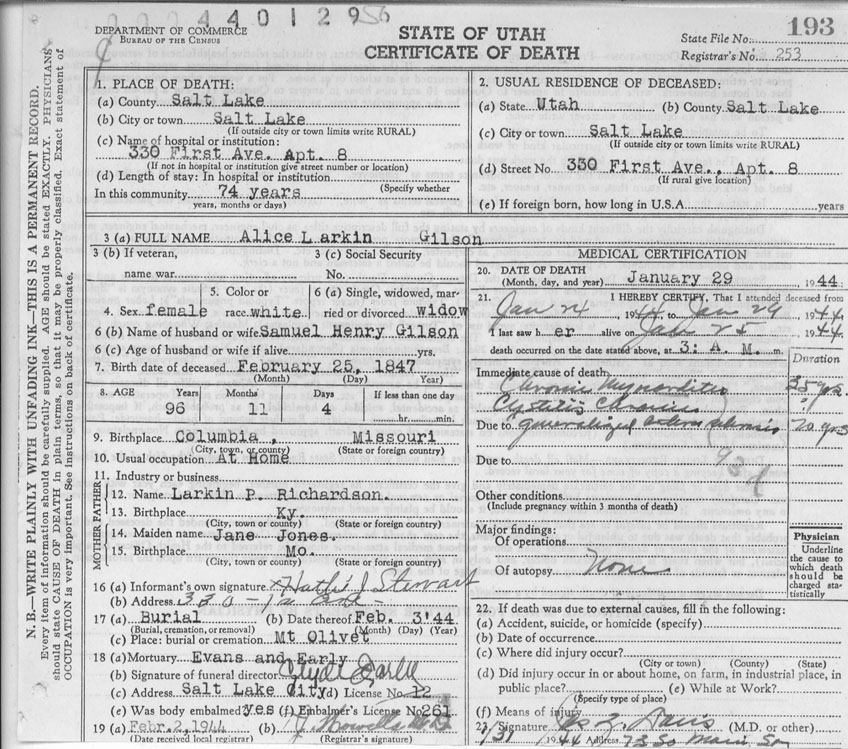 4 4 0 1 2 9 56
DEPARTMENT OF COMMERCE
BUREAU OF THE CENSUS
STATE OF UTAH
CERTIFICATE OF DEATH
State File No. 193
Registrar's No. 253
N. B.—WRITE PLAINLY WITH UNFADING INK—THIS IS A PERMANENT RECORD.
Every item of information should be carefully supplied. AGE should be stated EXACTLY. PHYSICIANS
should state CAUSE OF DEATH in plain terms, so that it may be properly classified. Exact statement of
OCCUPATION is very important. See instructions on back of certificate.
1. PLACE OF DEATH:
(a) County Salt Lake
(b) City or town Salt Lake
(If outside city or town limits write RURAL)
(c) Name of hospital or institution:
330 First Ave. Apt. 8
(If not in hospital or institution give street number or location)
(d) Length of stay: In hospital or institution
(Specify whether
In this community 74 years
years, months or days)
2. USUAL RESIDENCE OF DECEASED:
(a) State Utah (b) County Salt Lake
(c) City or town Salt Lake
(If outside city or town limits write RURAL)
(d) Street No. 330 First Ave., Apt. 8
(If rural give location)
(e) If foreign born, how long in U.S.A. years
3 (a) FULL NAME Alice Larkin Gilson
3 (b) If veteran,
name war
3 (c) Social Security
No.
4. Sex female
5. Color or
race white
6 (a) Single, widowed, mar-
ried or divorced widow
6 (b) Name of husband or wife Samuel Henry Gilson
6 (c) Age of husband or wife if alive yrs.
7. Birth date of deceased February 25, 1847
(Month) (Day) (Year)
8. AGE Years Months Days If less than one day
96 11 4 hr. min.
9. Birthplace Columbia, Missouri
(City, town, or county) (State or foreign country)
10. Usual occupation At Home
11. Industry or business
FATHER
12. Name Larkin P. Richardson.
13. Birthplace Ky.
(City, town or county) (State or foreign country)
MOTHER
14. Maiden name Jane Jones.
15. Birthplace Mo.
(City, town or county) (State or foreign country)
16 (a) Informant's own signature x Hattie J Stewart
(b) Address 330 - 1st
17 (a) Burial (b) Date thereof Feb. 3'44
(Burial, cremation, or removal) (Month) (Day) (Year)
(c) Place: burial or cremation Mt Olivet
18 (a) Mortuary Evans and Early
(b) Signature of funeral director Clyde Early
(c) Address Salt Lake City (d) License No. 12
(e) Was body embalmed? yes (f) Embalmer's License No 261
19 (a) Febr. 2, 1944 (b)
(Date received local registrar) (Registrar's signature)
MEDICAL CERTIFICATION
20. DATE OF DEATH
(Month, day, and year) January 29 1944:
21. I HEREBY CERTIFY, That I attended deceased from
Jan 24, 1944 to Jan 29 1944
I last saw h er alive on Jan 25 1944
death occurred on the date stated above, at 3: A. M. m.
Duration
Immediate cause of death
Chronic Myocarditis 35 yrs.
Cystitis Chronic "
Due to generalized 20 yrs
Due to 93d
Other conditions
(Include pregnancy within 3 months of death)
Major findings:
Of operations
Of autopsy None
Physician
Underline
the cause to
which death
should be
charged sta-
tistically
22. If death was due to external causes, fill in the following:
(a) Accident, suicide, or homicide (specify)
(b) Date of occurrence
(c) Where did injury occur?
(City or town) (County) (State)
(d) Did injury occur in or about home, on farm, in industrial place, in
public place? (e) While at Work?
(Specify type of place)
(f) Means of injury
23. Signature (M.D. or other)
1/31 1944 Address 73 So Main